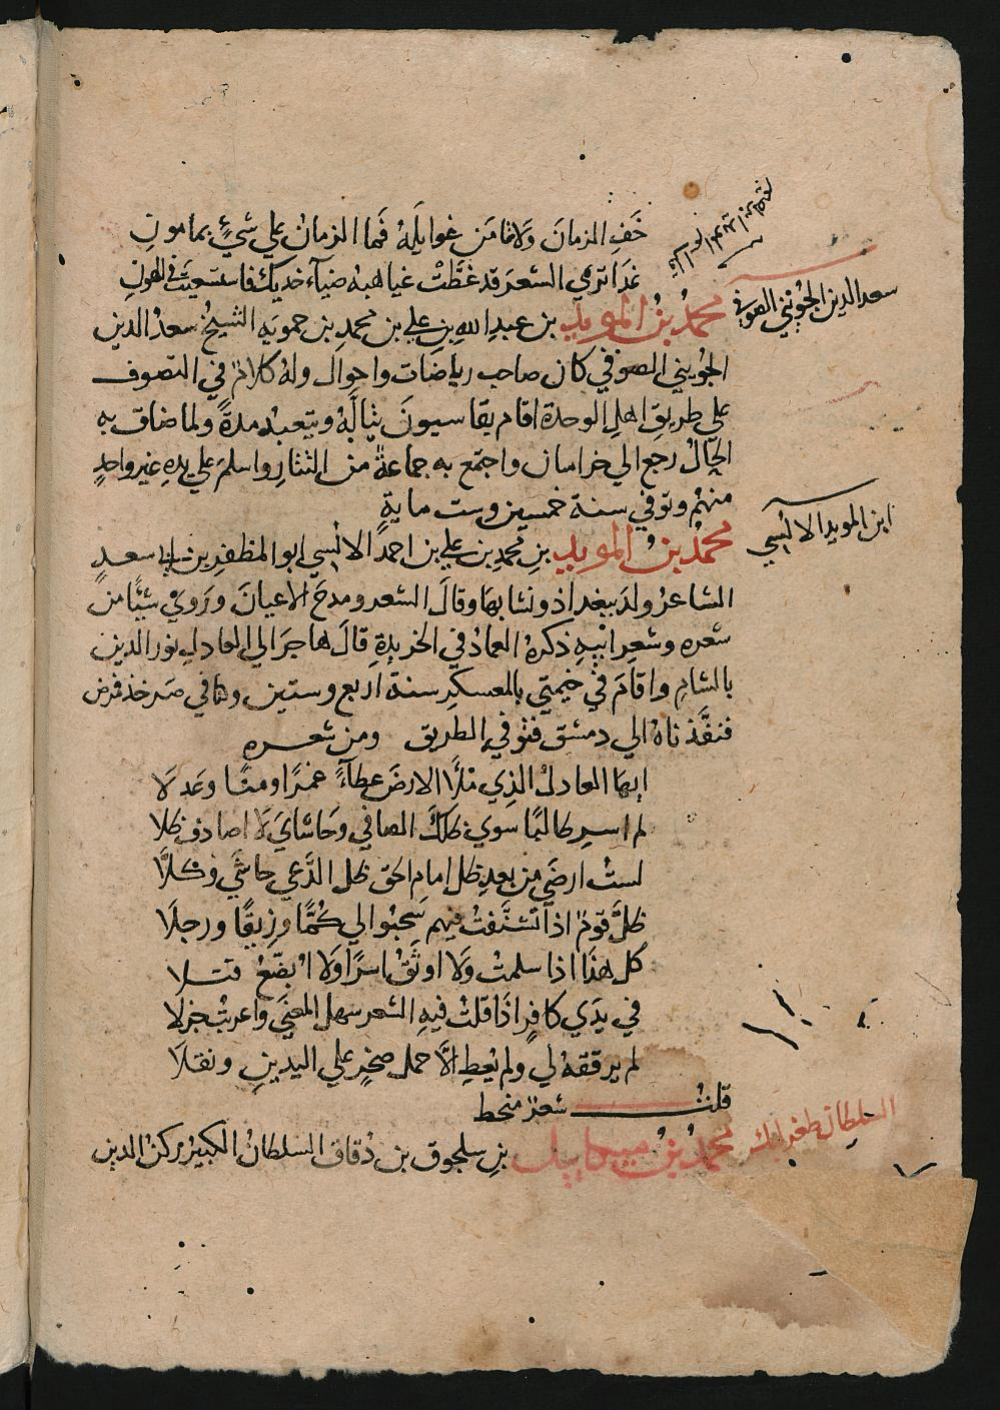 خَفِ الزمانَ وَلا تامَن غوايلَهُ فَما الزمانُ علي شيءٍ بمامونِ
غدَا تري الشعرَ قد غطَّتْ غياهبه ضيآء خديك فاستسعيت في الهونِ
سعد الدين الجويني الصوفي
محمد بن المويد بن عبدِ اللهِ بنِ علي بن محمدِ بن حمويه الشيخُ سعدُ الدين
الجويني الصوفي كان صاحب رياضات واحوال ولهُ كلامٌ في التصوف
علي طريقِ اهلِ الوحدة اقام بقاسيونَ يتالَّهُ ويتعبد مدةً ولما ضاق به
الحالُ رجع الي خراسان واجتمع به جماعةٌ من التتارِ واسلمَ علي يدهِ غير واحدٍ
منهُم وتوفي سنة خمسين وست مايةٍ
ابن المويد الالسي
محمدُ بنُ المويد بنِ محمدِ بن علي بن احمدَ الالسي ابو المظفرِ بن ابي سعدٍ
الشاعرُ ولدَ ببغداذ ونشا بهَا وقالَ الشعر ومدحَ الاعيانَ وَرَوي شيًا من
شعره وشعرِ ابيهِ ذكرهُ العمادُ في الخريدةِ قالَ هاجرَ الي العادلِ نور الدين
بالشامِ واقامَ في خيمتي بالمعسكرِ سنة اربع وستين وهَا في صرخد فمرض
فنفَّذناهُ الي دمشق فتوفي الطريق ومن شعره
ايها العادلُ الذِي ملأ الارضَ عطآءً غمرًا ومنًا وعَدلَا
لم اسر طالبًا سوي ظلكَ الصافي وحَاشايَ لَا اصادف ظلا
لستُ ارضَي من بعدِ ظل امام الحق ظل الدَّعي حاشَي وكلَّا
ظلَّ قومٌ اذا تشنَّفتُ فيهم سَحبُوا لي كُمَّا وزيقًا ورجلَا
كل هذَا اذا سلمتُ وَلَا اوثَقْ اسرًا وَلَا ابضَّعْ قتلا
في يَدَي كافرٍ اذَا قلتُ فيهِ الشعر سهل المعنَي واعربتُ جزلَا
لم يرققهُ لي ولم يُعطِ الَّا حمل صخرٍ علي اليدينِ ونقلَا
قلتُ شعرٌ منحط
السلطان طغرلبك
محمدُ بنُ ميكاييل بنِ سلجوق بن دُقاق السلطانُ الكبيرُ ركن الدين